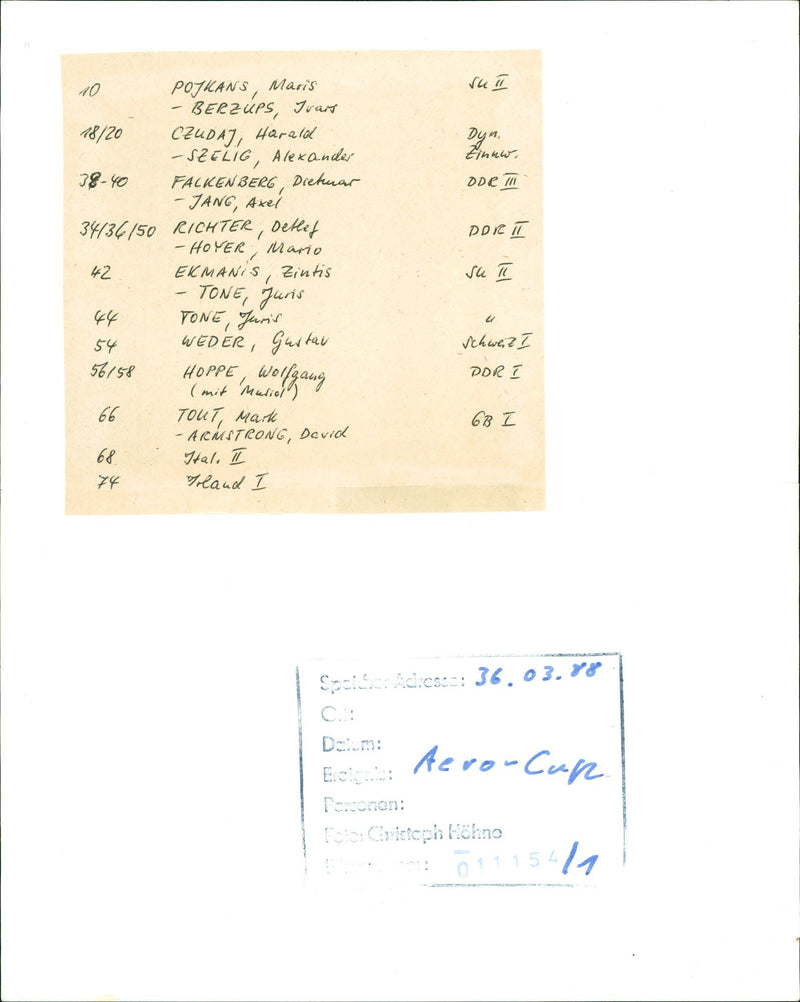 10 POJKANS, Maris SU II
- BERZUPS, Ivars
18/20 CZUDAJ, Harald Dyn.
- SZELIG, Alexander Zinnw.
38-40 FALKENBERG, Dietmar DDR III
- JANG, Axel
34/36/50 RICHTER, Detlef DDR II
- HOYER, Mario
42 EKMANIS, Zintis SU II
- TONE, Juris
44 TONE, Juris "
54 WEDER, Gustav Schweiz I
56/58 HOPPE, Wolfgang DDR I
(mit Musiol)
66 TOUT, Mark GB I
- ARMSTRONG, David
68 Ital. II
74 Irland I
Speicher-Adresse: 36.03.88
Ort:
Datum:
Ereignis: Aero-Cup
Personen:
Foto: Christoph Höhne
011154/1